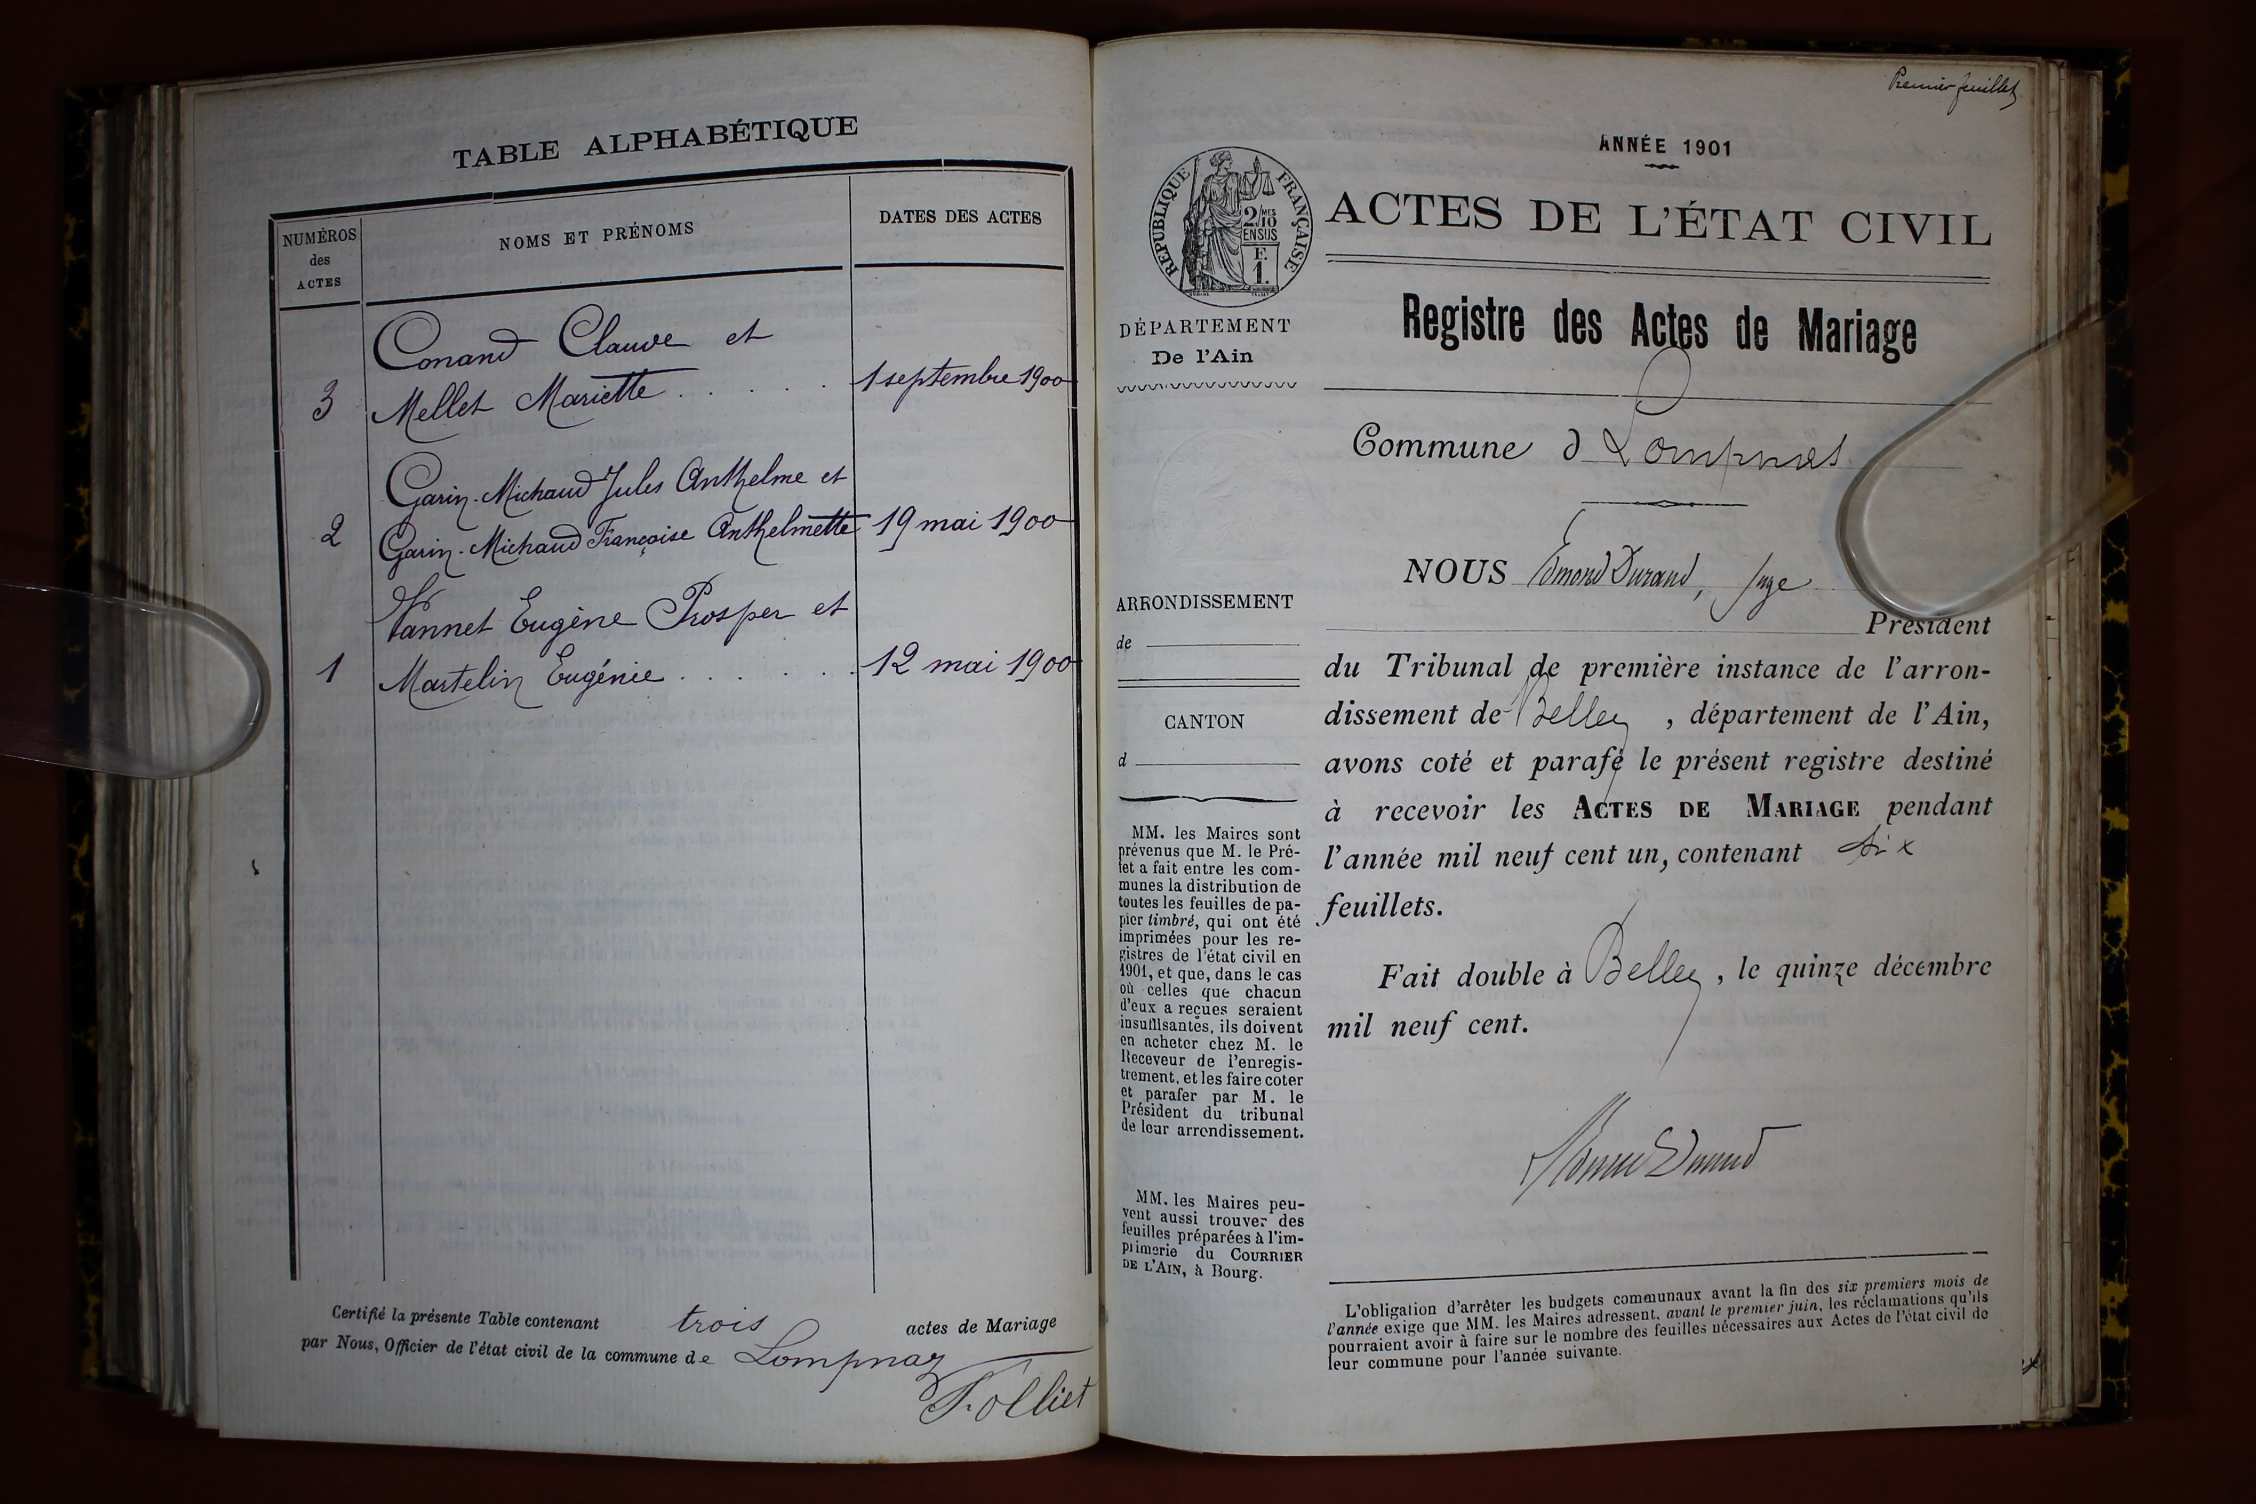 TABLE ALPHABÉTIQUE
NUMÉROS
des
ACTES
NOMS ET PRÉNOMS
DATES DES ACTES
Conand Claude et
3 Mellet Mariette . . . . . 1 septembre 1900
Garin-Michaud Jules Anthelme et
2 Garin-Michaud Françoise Anthelmette 19 mai 1900
Vannet Eugène Prosper et
1 Martelin Eugénie . . . . . . 12 mai 1900
Certifié la présente Table contenant trois actes de Mariage
par Nous, Officier de l'état civil de la commune de Lompnaz
Folliet
Premier feuillet
ANNÉE 1901
RÉPUBLIQUE FRANÇAISE
2/10MES
EN SUS
F.
1.
ACTES DE L'ÉTAT CIVIL
Registre des Actes de Mariage
DÉPARTEMENT
De l'Ain
Commune d Lompnas
ARRONDISSEMENT
de
CANTON
d
MM. les Maires sont
prévenus que M. le Pré-
fet a fait entre les com-
munes la distribution de
toutes les feuilles de pa-
pier timbré, qui ont été
imprimées pour les re-
gistres de l'état civil en
1901, et que, dans le cas
où celles que chacun
d'eux a reçues seraient
insuffisantes, ils doivent
en acheter chez M. le
Receveur de l'enregis-
trement, et les faire coter
et parafer par M. le
Président du tribunal
de leur arrondissement.
MM. les Maires peu-
vent aussi trouver des
feuilles préparées à l'im-
primerie du COURRIER
DE L'AIN, à Bourg.
NOUS Edmond Durand, Juge
Président
du Tribunal de première instance de l'arron-
dissement de Belley, département de l'Ain,
avons coté et parafé le présent registre destiné
à recevoir les ACTES DE MARIAGE pendant
l'année mil neuf cent un, contenant six
feuillets.
Fait double à Belley, le quinze décembre
mil neuf cent.
L'obligation d'arrêter les budgets communaux avant la fin des six premiers mois de
l'année exige que MM. les Maires adressent, avant le premier juin, les réclamations qu'ils
pourraient avoir à faire sur le nombre des feuilles nécessaires aux Actes de l'état civil de
leur commune pour l'année suivante.